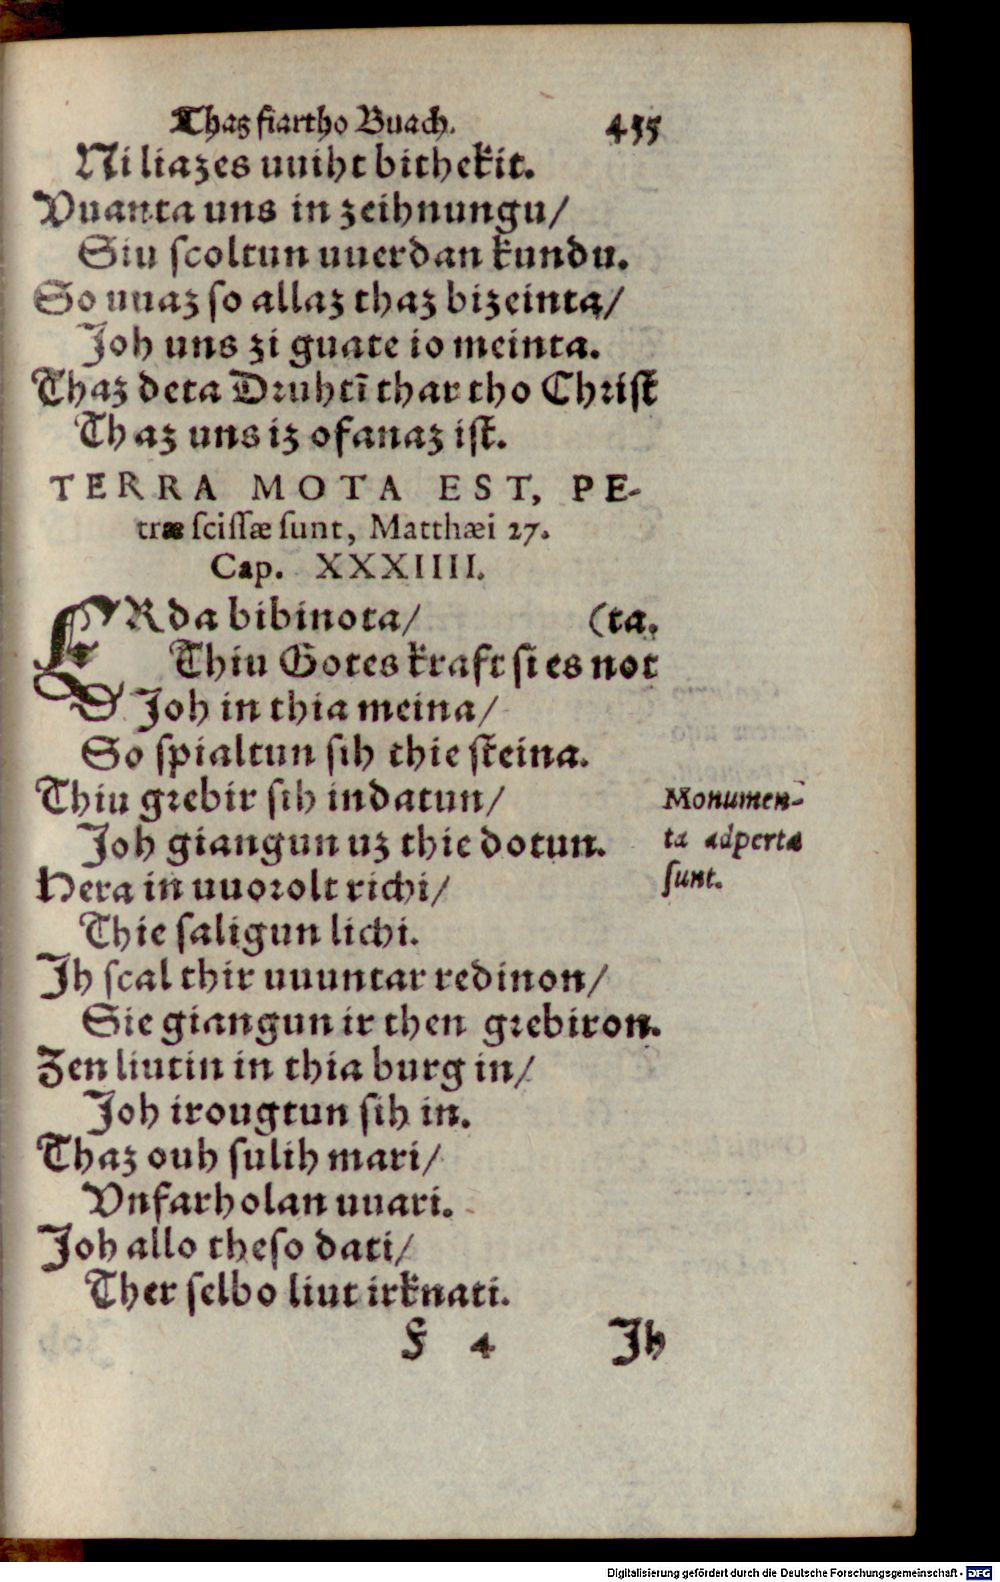 Thaz fiartho Buach. 435
Ni liazes uuiht bithekit.
Vuanta uns in zeihnungu/
Siu scoltun uuerdan kundu.
So uuaz so allaz thaz bizeinta/
Joh uns zi guate io meinta.
Thaz deta Druhtĩ thar tho Christ
Thaz uns iz ofanaz ist.
TERRA MOTA EST, PE-
træ scissæ sunt, Matthæi 27.
Cap. XXXIIII.
ERda bibinota/ (ta.
Thiu Gotes kraft si es not
Joh in thia meina/
So spialtun sih thie steina.
Thiu grebir sih indatun/
Joh giangun uz thie dotun.
Hera in uuorolt richi/
Thie saligun lichi.
Jh scal thir uuuntar redinon/
Sie giangun ir then grebiron.
Zen liutin in thia burg in/
Joh irougtun sih in.
Thaz ouh sulih mari/
Vnfarholan uuari.
Joh allo theso dati/
Ther selbo liut irknati.
Monumen-
ta adperta
sunt.
F 4 Jh
Digitalisierung gefördert durch die Deutsche Forschungsgemeinschaft - DFG